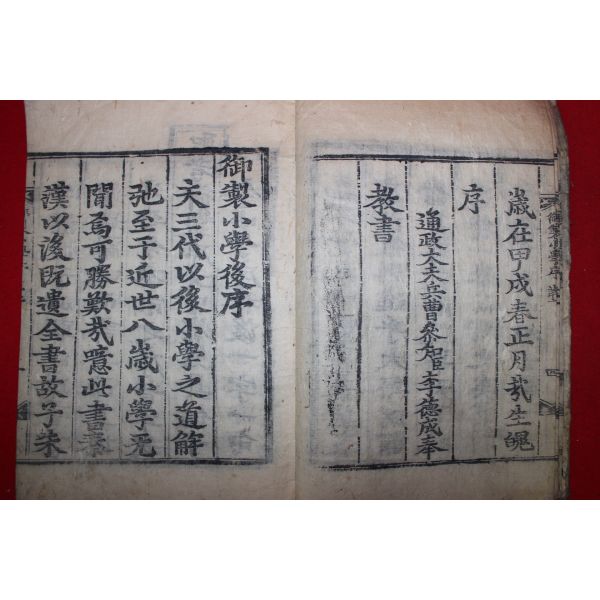 歲在甲戌春正月哉生魄
序
通政大夫兵曹參知臣李德成奉
教書
御製小學後序
夫三代以後小學之道解
弛至于近世八歲小學无
聞焉可勝歎哉噫此書秦
漢以後旣遺全書故子朱